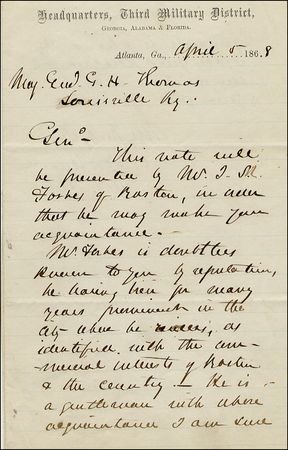 Headquarters, Third Military District,
Georgia, Alabama & Florida.
Atlanta, Ga., April 5 1868
Maj. Genl G. H. Thomas
Louisville Ky.
Genl
This note will
be presented by Mr. J. M.
Forbes of Boston, in order
that he may make your
acquaintance.
Mr. Forbes is doubtless
known to you by reputation,
he having been for many
years prominent in the
city where he resides, as
identified with the com-
mercial interests of Boston
& the country — He is
a gentleman with whose
acquaintance I am sure